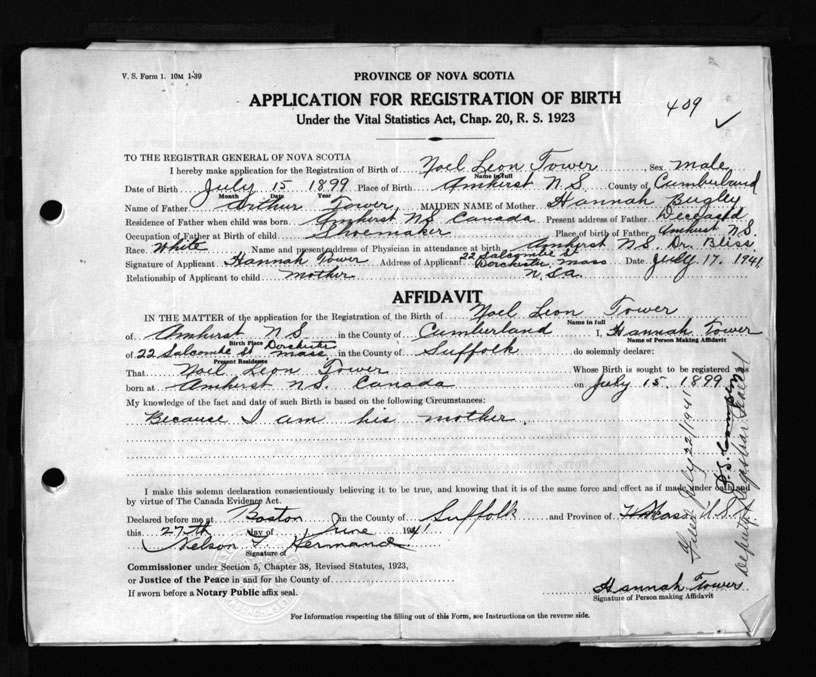 V. S. Form 1. 10M 1-39
PROVINCE OF NOVA SCOTIA
APPLICATION FOR REGISTRATION OF BIRTH
409
Under the Vital Statistics Act, Chap. 20, R. S. 1923
TO THE REGISTRAR GENERAL OF NOVA SCOTIA
I hereby make application for Registration of Birth of Noel Leon Tower Sex male
Name in full
Date of Birth July 15 1899 Place of Birth Amherst N.S. County of Cumberland
Month Date Year
Name of Father Arthur Tower MAIDEN NAME of Mother Hannah Bugley
Residence of Father when child was born Amherst NS Canada Present address of Father Deceased
Occupation of Father at Birth of child Shoemaker Place of birth of Father Amherst N.S.
Race White Name and present address of Physician in attendance at birth Amherst N.S. Dr. Bliss
Signature of Applicant Hannah Tower Address of Applicant 22 Salcombe St Dorchester Mass Date July 17, 1941
Relationship of Applicant to child mother
AFFIDAVIT
IN THE MATTER of the application for the Registration of the Birth of Noel Leon Tower
Name in full
of Amherst N S in the County of Cumberland I, Hannah Tower
Birth Place Name of Person Making Affidavit
of 22 Salcombe St. Dorchester Mass in the County of Suffolk do solemnly declare:
Present Residence
That Noel Leon Tower Whose Birth is sought to be registered was
born at Amherst N.S. Canada on July 15 1899
My knowledge of the fact and date of such Birth is based on the following Circumstances:
Because I am his mother.
I make this solemn declaration conscientiously believing it to be true, and knowing that it is of the same force and effect as if made under oath and
by virtue of The Canada Evidence Act.
Declared before me at Boston in the County of Suffolk and Province of Mass. U.S.A.
this 27th day of June 1941
Nelson
Signature of
Commissioner under Section 5, Chapter 38, Revised Statutes, 1923,
or Justice of the Peace in and for the County of
If sworn before a Notary Public affix seal.
Hannah Tower
Signature of Person making Affidavit
For Information respecting the filling out of this Form, see Instructions on the reverse side.
July 22/1941
Deputy Registrar General